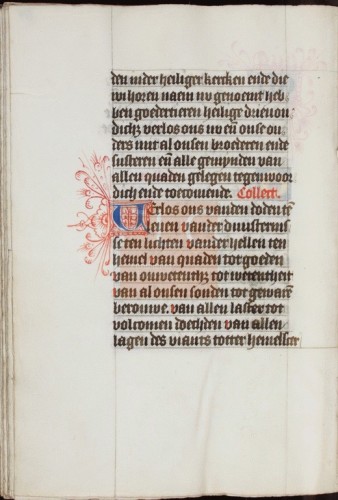 den inder heiliger kercken ende die
wi horen naem nv genoemt heb
ben goedertieren heilige drieuon
dich; verlos ons nv eñ onse ou
ders mit al onsen broederen ende
susteren eñ alle gemynden van
allen quaden gelegen tegenwoor
dich ende toecomende. Collect.
Verlos ons vanden doden teñ
leuen vander duusternis
se ten lichten vander hellen ten
hemel van quaden tot goeden
van onwetenth; tot wetentheit
van al onsen sonden tot gewarē
berouwe. van allen laster tot
volcomen doechden van allen
lagen des viants totter hemelscer